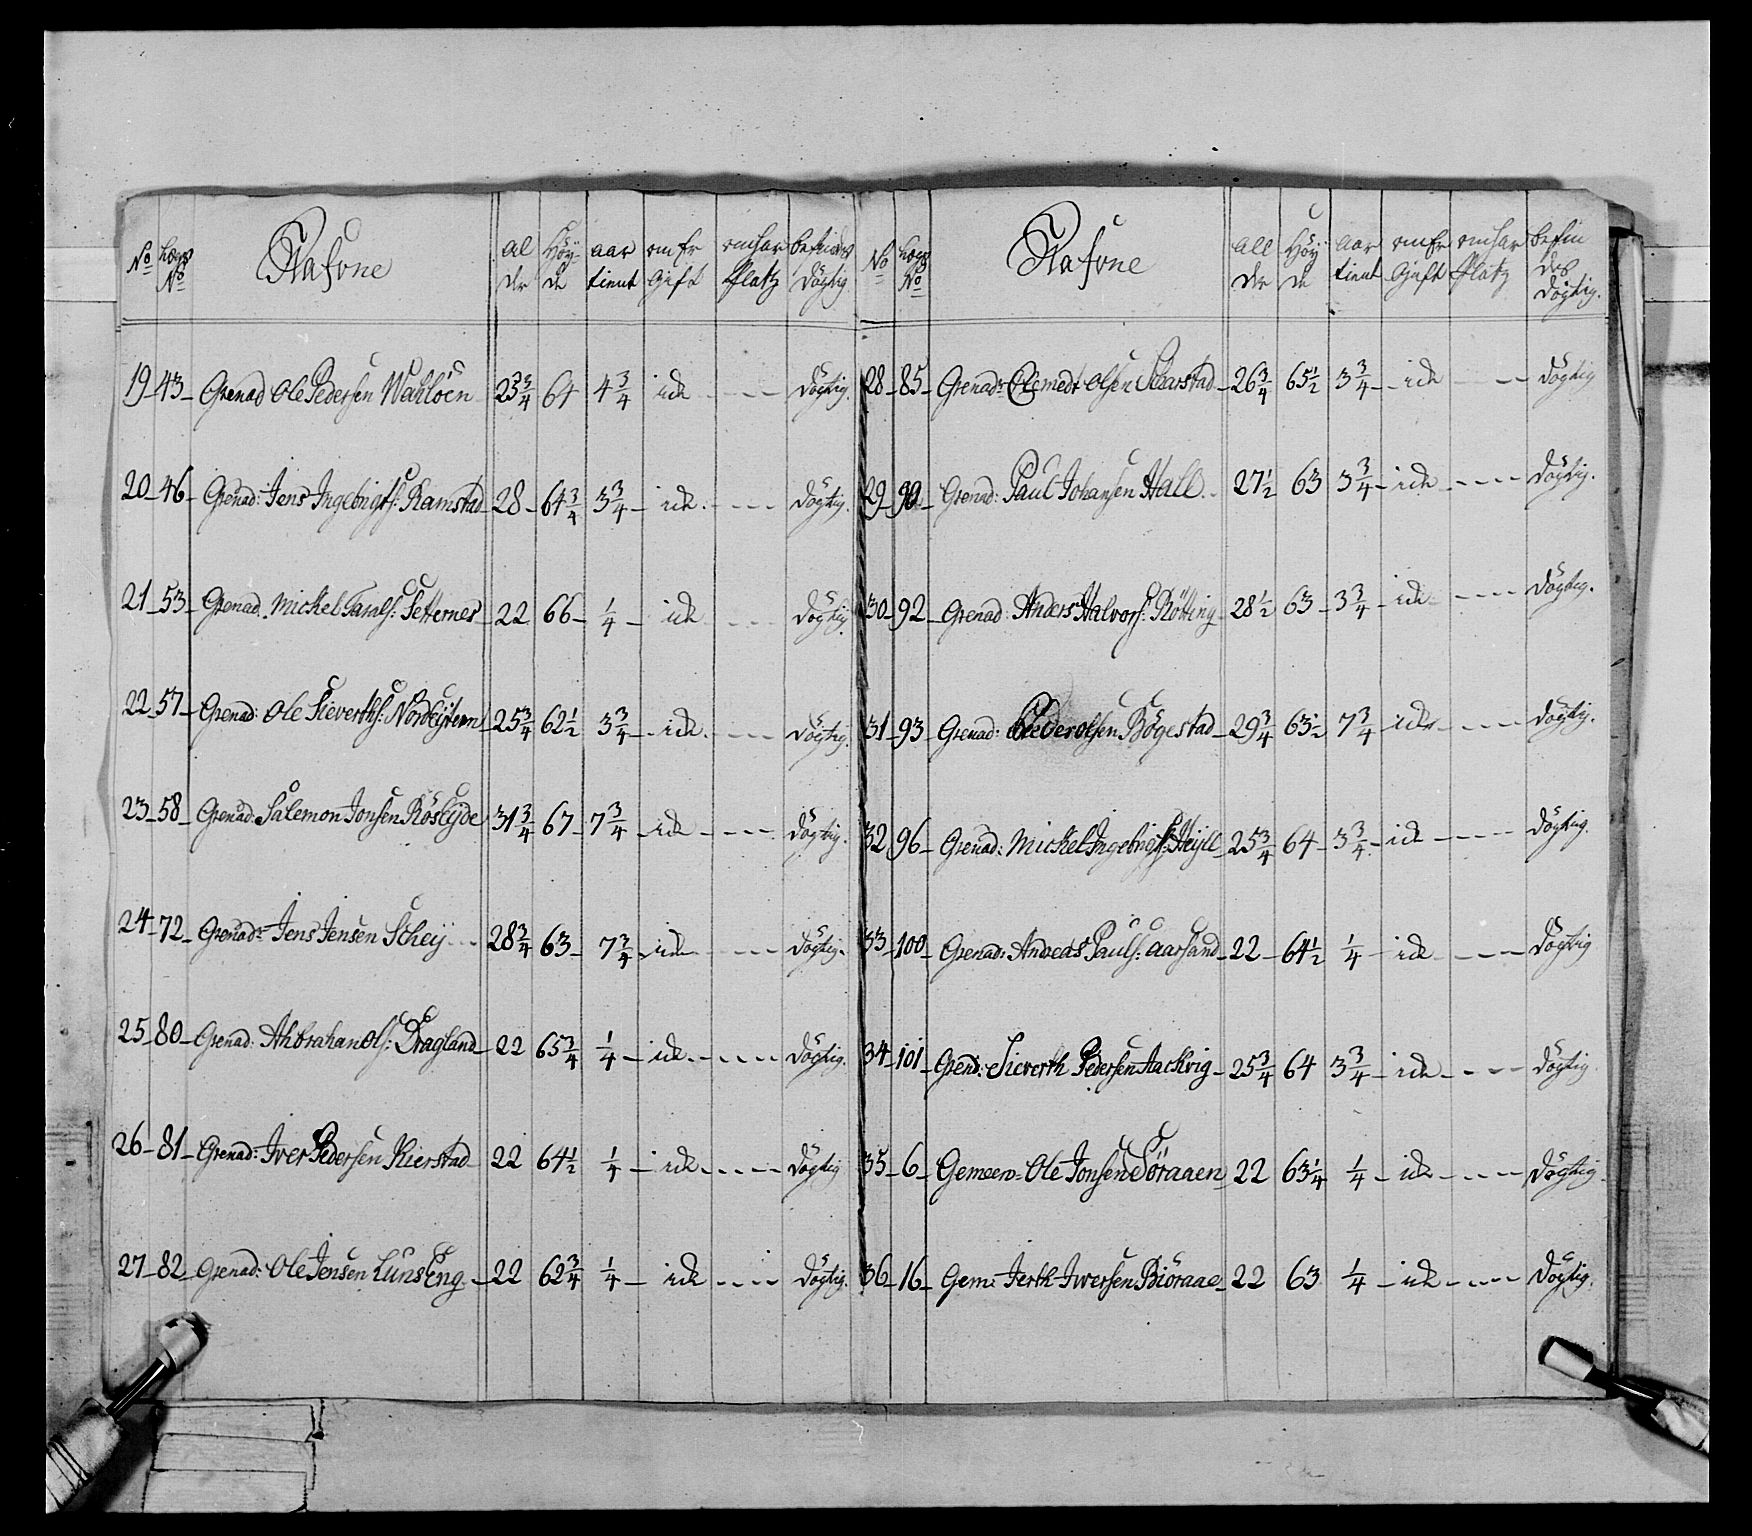 No Legs No Nafvne Al der Höy de aar tient om Er Gift om har Platz befindes Dögtig
19 43 Grenad Ole Pedersen Wahlöen 23 3/4 64 4 3/4 ick Dögtig.
20 46 Grenad: Jens Ingebrigts: Ramstad 28 64 3/4 3 3/4 ick Dögtig.
21 53 Grenad. Michel Tarals: Setternes 22 66 1/4 ick Dögtig.
22 57 Grenad: Ole Sieverths: 25 3/4 62 1/2 3 3/4 ick Dögtig.
23 58 Grenad: Salemon Jonsen Röslyde 31 3/4 67 7 3/4 ick Dögtig.
24 72 Grenad: Jens Jensen Scheij 28 3/4 63 7 3/4 ick Dögtig.
25 80 Grenad: Ahbrahan Ols: Dragland 22 65 3/4 1/4 ick Dögtig.
26 81 Grenad: Iver Pedersen Kierstad 22 64 1/2 1/4 ick Dögtig
27 82 Grenad: Ole Jensen LunsEng 22 62 3/4 1/4 ick Dögtig.
No Legs No Nafvne All der Höy de aar tient om Er Gift om har Platz befin des Dögtig.
28 85 Grenad: Clemedt Olsen Skarstad 26 3/4 65 1/2 3 3/4 ick Dögtig
29 90 Grenad: Paul Johansen Hall 27 1/2 63 3 3/4 ick Dögtig.
30 92 Grenad: Anders Halvors: Bötting 28 1/2 63 3 3/4 ick Dögtig.
31 93 Grenad: Peder Olsen Bögestad 29 3/4 63 1/2 7 3/4 ick Dögtig.
32 96 Grenad: Michel Ingebrigts: Heijll 25 3/4 64 3 3/4 ick Dögtig.
33 100 Grenad: Andreas Pauls: Aarsand 22 64 1/2 1/4 ick Dögtig
34 101 Grend: Sieverth Pedersen Aackvig 25 3/4 64 3 3/4 ick Dögtig
35 6 Gemeen= Ole Jonsen Söraaen 22 63 1/4 1/4 ick Dögtig
36 16 Gem: Jerth Iwersen Biöraae 22 63 1/4 ick Dögtig.